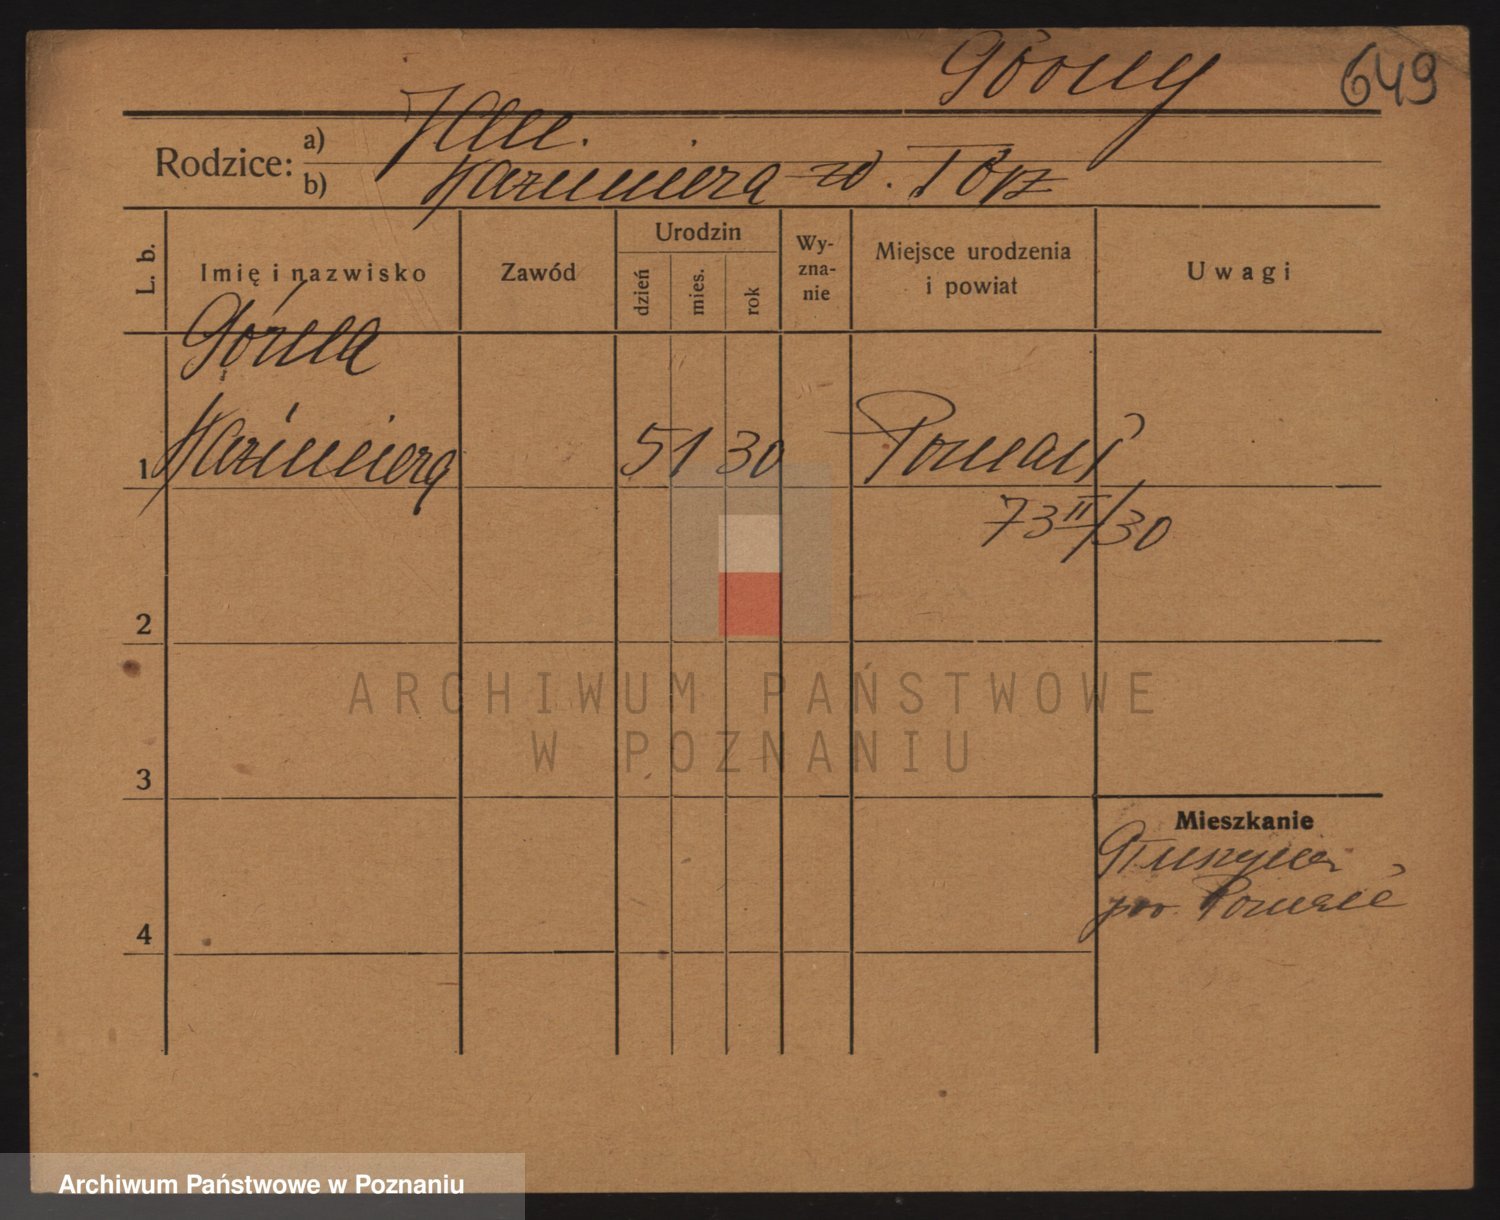 Górny 649
Rodzice: a)
b) Kazimiera zd. Topz
L. b. Imię i nazwisko Zawód Urodzin dzień mies. rok Wy-zna-nie Miejsce urodzenia i powiat Uwagi
Górna
1 Kazimiera 5 1 30 Poznań
73 II/30
2
ARCHIWUM PAŃSTWOWE
W POZNANIU
3
Mieszkanie
pow. Poznań
4
Archiwum Państwowe w Poznaniu